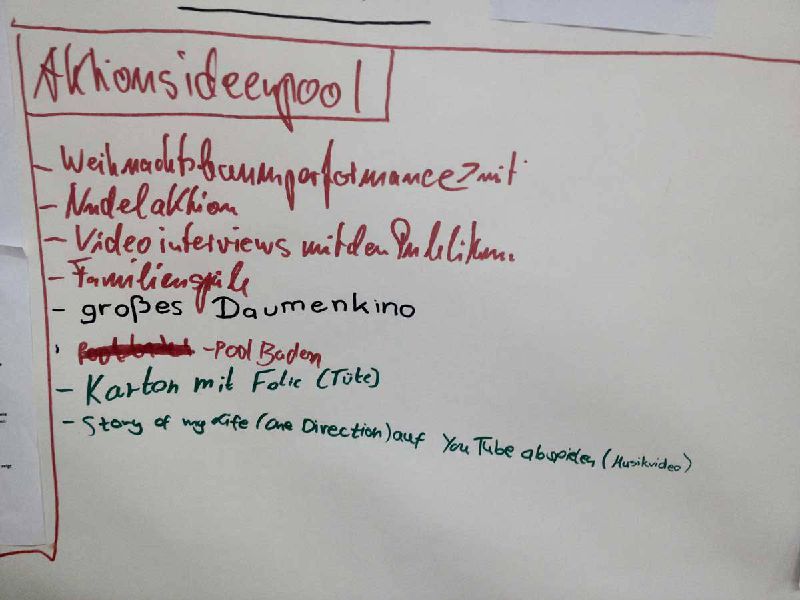 Aktionsideenpool
- Weihnachtsbaumperformance mit
- Nudelaktion
- Videointerviews mit den Publikum.
- Familienspiele
- großes Daumenkino
- Pool Baden
- Karton mit Folie (Tüte)
- Story of my Life (One Direction) auf YouTube abspielen (Musikvideo)